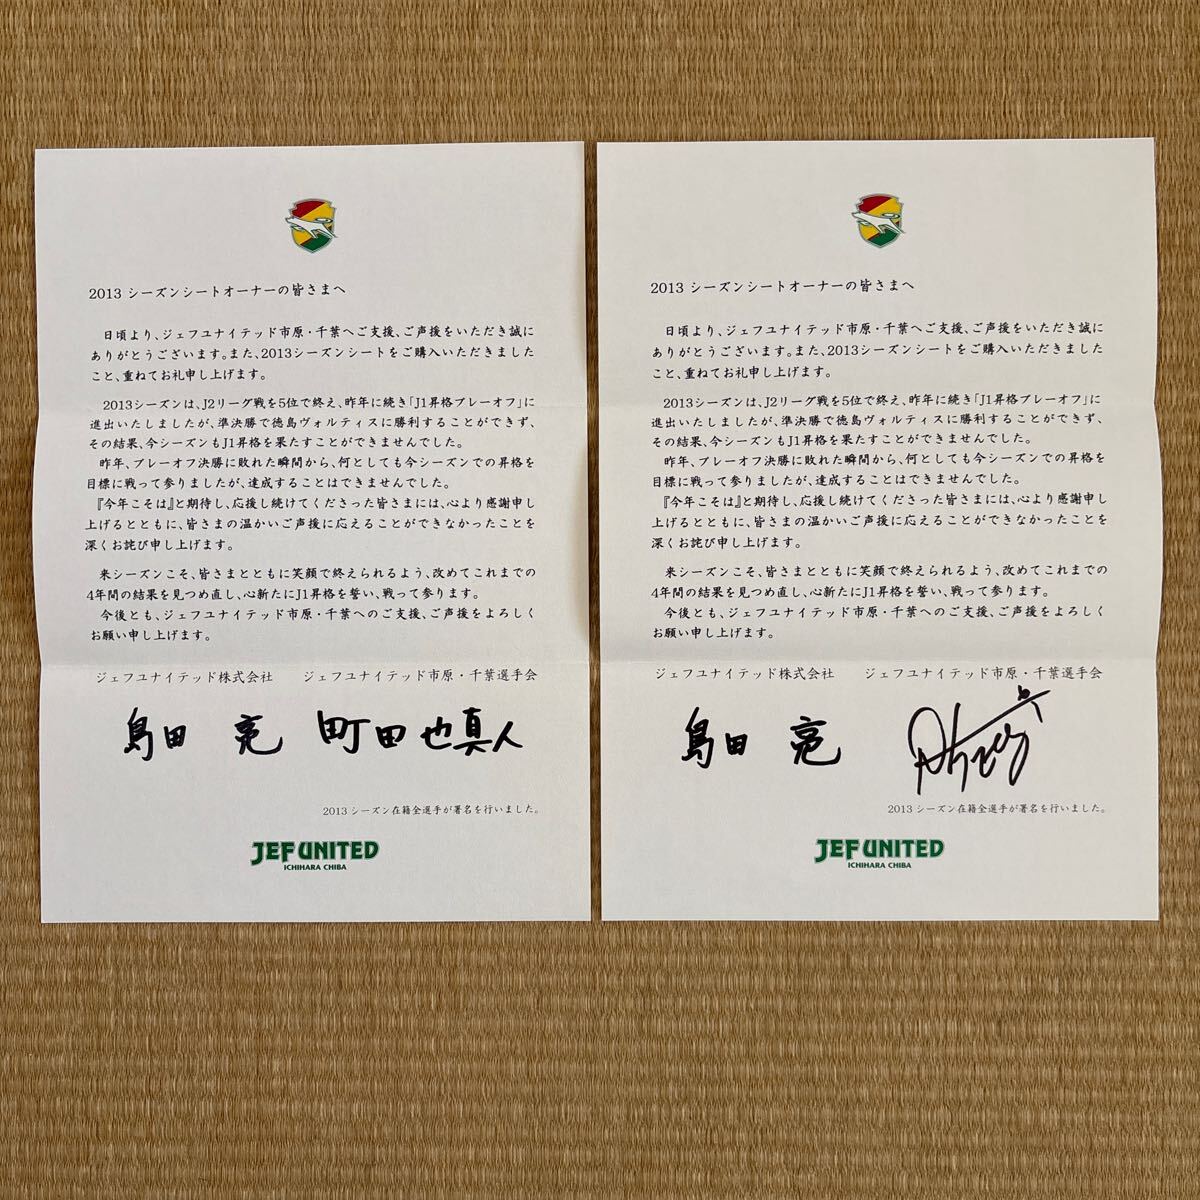 2013 シーズンシートオーナーの皆さまへ
日頃より、ジェフユナイテッド市原・千葉へご支援、ご声援をいただき誠に
ありがとうございます。また、2013シーズンシートをご購入いただきました
こと、重ねてお礼申し上げます。
2013シーズンは、J2リーグ戦を5位で終え、昨年に続き「J1昇格プレーオフ」に
進出いたしましたが、準決勝で徳島ヴォルティスに勝利することができず、
その結果、今シーズンもJ1昇格を果たすことができませんでした。
昨年、プレーオフ決勝に敗れた瞬間から、何としても今シーズンでの昇格を
目標に戦って参りましたが、達成することはできませんでした。
『今年こそは』と期待し、応援し続けてくださった皆さまには、心より感謝申し
上げるとともに、皆さまの温かいご声援に応えることができなかったことを
深くお詫び申し上げます。
来シーズンこそ、皆さまとともに笑顔で終えられるよう、改めてこれまでの
4年間の結果を見つめ直し、心新たにJ1昇格を誓い、戦って参ります。
今後とも、ジェフユナイテッド市原・千葉へのご支援、ご声援をよろしく
お願い申し上げます。
ジェフユナイテッド株式会社 ジェフユナイテッド市原・千葉選手会
島田 亮 町田也真人
2013 シーズン在籍全選手が署名を行いました。
JEF UNITED
ICHIHARA CHIBA
2013 シーズンシートオーナーの皆さまへ
日頃より、ジェフユナイテッド市原・千葉へご支援、ご声援をいただき誠に
ありがとうございます。また、2013シーズンシートをご購入いただきました
こと、重ねてお礼申し上げます。
2013シーズンは、J2リーグ戦を5位で終え、昨年に続き「J1昇格プレーオフ」に
進出いたしましたが、準決勝で徳島ヴォルティスに勝利することができず、
その結果、今シーズンもJ1昇格を果たすことができませんでした。
昨年、プレーオフ決勝に敗れた瞬間から、何としても今シーズンでの昇格を
目標に戦って参りましたが、達成することはできませんでした。
『今年こそは』と期待し、応援し続けてくださった皆さまには、心より感謝申し
上げるとともに、皆さまの温かいご声援に応えることができなかったことを
深くお詫び申し上げます。
来シーズンこそ、皆さまとともに笑顔で終えられるよう、改めてこれまでの
4年間の結果を見つめ直し、心新たにJ1昇格を誓い、戦って参ります。
今後とも、ジェフユナイテッド市原・千葉へのご支援、ご声援をよろしく
お願い申し上げます。
ジェフユナイテッド株式会社 ジェフユナイテッド市原・千葉選手会
島田 亮
2013 シーズン在籍全選手が署名を行いました。
JEF UNITED
ICHIHARA CHIBA